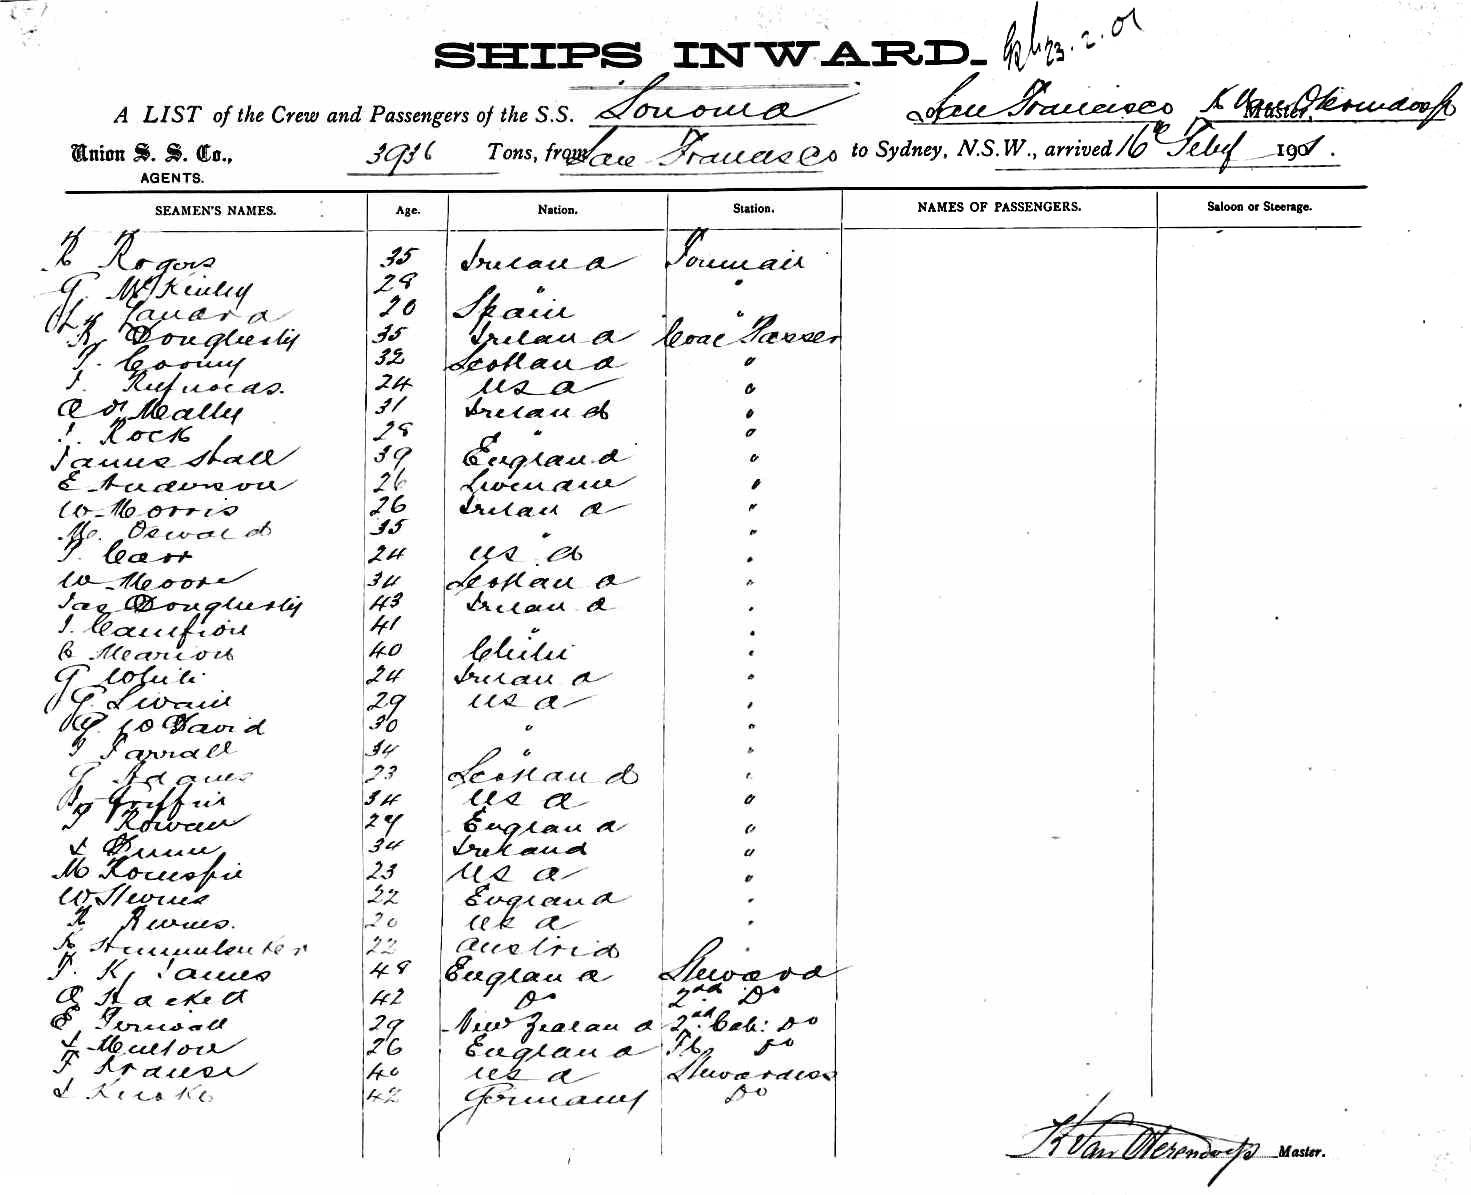 23.2.01
SHIPS INWARD.
A LIST of the Crew and Passengers of the S.S. Sonoma San Francisco K Van Oterendorp Master,
Union S. S. Co., 3936 Tons, from San Francisco to Sydney, N.S.W., arrived 16th Feby 1901.
AGENTS.
SEAMEN'S NAMES. Age. Nation. Station. NAMES OF PASSENGERS. Saloon or Steerage.
R Rogers 35 Ireland Fireman
G. McKinley 28 " "
20 Spain "
Dougherty 35 Ireland Coal Passer
T. Cooney 32 Scotland "
24 USA "
O'Mally 31 Ireland "
J. Rock 28 " "
James Hall 39 England "
E Anderson 26 "
W Morris 26 Ireland "
M. Oswald 35 " "
T. Carr 24 US A "
W Moore 34 Scotland "
Jas Dougherty 43 Ireland "
J. Campion 41 " "
Marion 40 Chili "
G White 24 Ireland "
G. Swain 29 USA "
W David 30 " "
Farrall 34 " "
G Adams 23 Scotland "
Griffin 34 US A "
Rowan 29 England "
Dunn 34 Ireland "
M 23 US A "
W 22 England "
20 US A "
22 Austria "
F. K. James 48 England Steward
Hackett 42 Do 2nd Do
E 29 New Zealand 2nd Cab: Do
26 England Do
Krause 40 US A Stewardess
42 Germany Do
K Van Oterendorp Master.